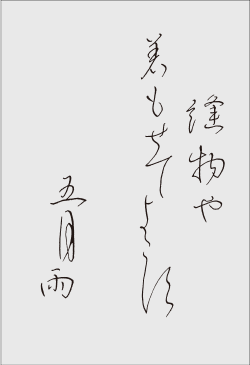 縫物や
着もせてよこす
五月雨